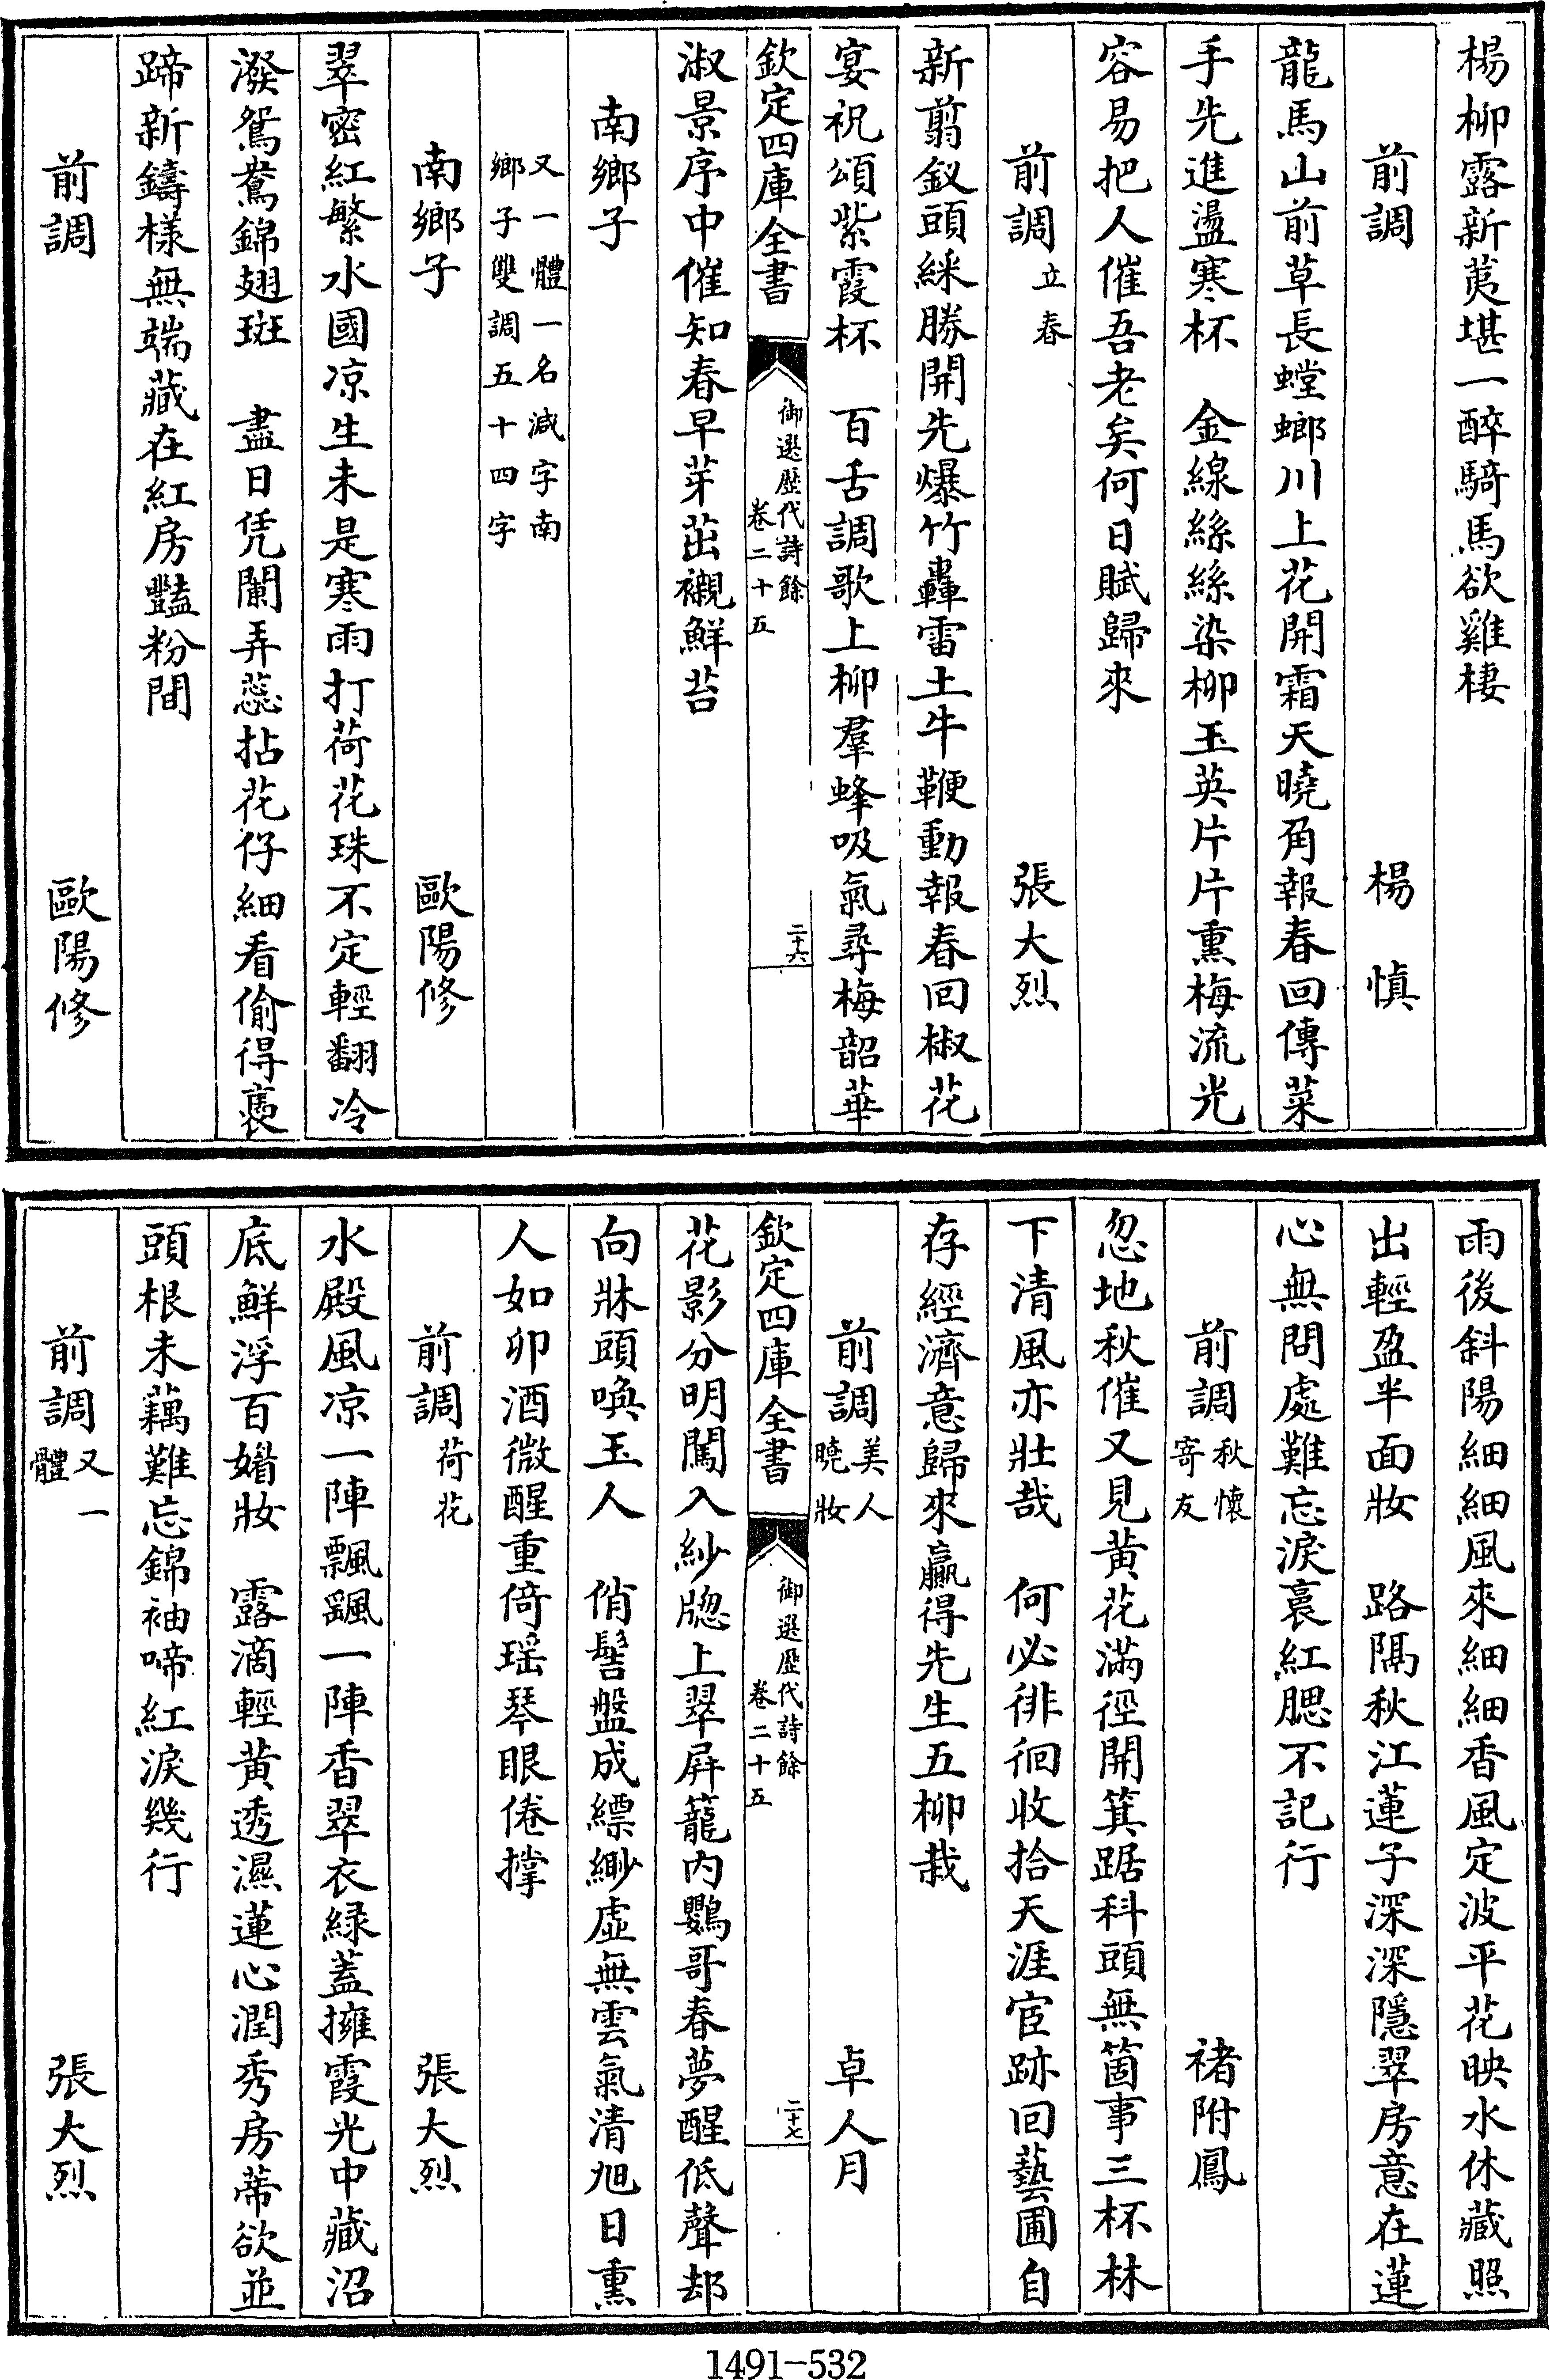 楊柳露新荑堪一醉騎馬欲雞棲
前調 楊慎
龍馬山前草長螳螂川上花開霜天曉角報春回傳菜
手先進盪寒杯 金線絲絲染柳玉英片片熏梅流光
容易把人催吾老矣何日賦歸來
前調 立春 張大烈
新翦釵頭綵勝開先爆竹轟雷土牛鞭動報春回椒花
宴祝頌紫霞杯 百舌調歌上柳羣蜂吸氣尋梅韶華
欽定四庫全書 御選歷代詩餘 卷二十五 二十六
淑景序中催知春早芽茁襯鮮苔
南鄉子
又一體一名減字南
鄉子雙調五十四字
南鄉子 歐陽修
翠密紅繁水國凉生未是寒雨打荷花珠不定輕翻冷
潑鴛鴦錦翅斑 盡日凭闌弄蕊拈花仔細看偷得裊
蹄新鑄樣無端藏在紅房豔粉間
前調 歐陽修
雨後斜陽細細風來細細香風定波平花映水休藏照
出輕盈半面妝 路隔秋江蓮子深深隱翠房意在蓮
心無問處難忘淚裛紅腮不記行
前調 秋懷寄友 禇附鳳
忽地秋催又見黃花滿徑開箕踞科頭無箇事三杯林
下清風亦壯哉 何必徘徊收拾天涯宦跡回藝圃自
存經濟意歸來贏得先生五柳栽
前調 美人曉妝 卓人月
欽定四庫全書 御選歷代詩餘 卷二十五 二十七
花影分明闖入紗牕上翠屏籠內鸚哥春夢醒低聲却
向牀頭喚玉人 俏髻盤成縹緲虛無雲氣清旭日熏
人如卯酒微醒重倚瑶琴眼倦撑
前調 荷花 張大烈
水殿風凉一陣飄颻一陣香翠衣緑蓋擁霞光中藏沼
底鮮浮百媚妝 露滴輕黃透濕蓮心潤秀房蒂欲並
頭根未藕難忘錦袖啼紅淚幾行
前調 又一體 張大烈
1491-532